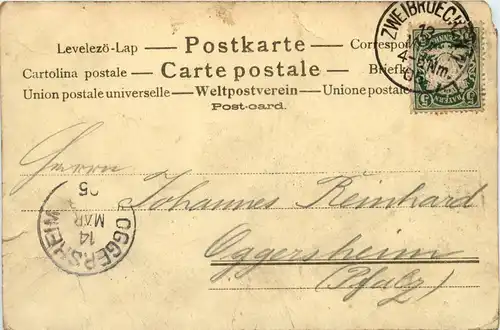 Levelezö-Lap — Postkarte — Correspon
Cartolina postale — Carte postale — Briefk
Union postale universelle — Weltpostverein — Unione postale
Post-card.
ZWEIBRUECKEN
13
5
BAYERN
5
Herrn
Johannes Reinhard
Oggersheim
(Pfalz)
OGGERSHEIM
14
MAR
05